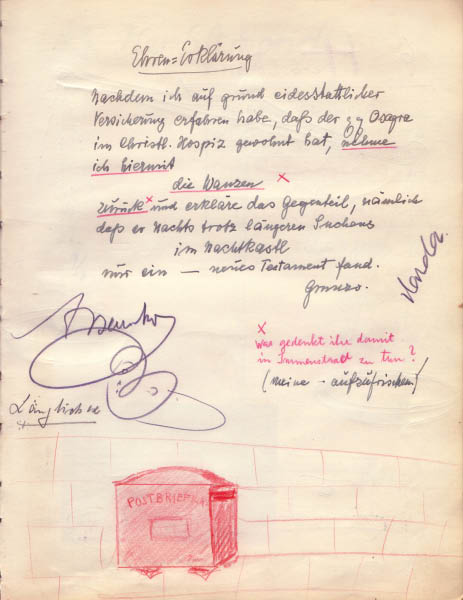 Ehren=Erklärung
Nachdem ich auf grund eidesstattlicher
Versicherung erfahren habe, daß der
im Christl. Hospiz gewohnt hat, nehme
ich hiermit
die Wanzen x
zurück x und erkläre das Gegenteil, nämlich
daß er Nachts trotz längeren Suchens
im Nachtkastl
nur ein — neues Testament fand.
x
Was gedenkt ihr damit
in zu tun?
(meine - aufzufrischen!)
POSTBRIEFKA